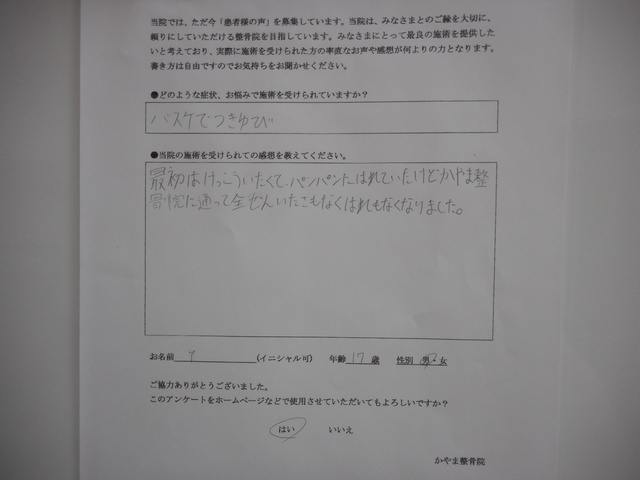 当院では、ただ今「患者様の声」を募集しています。当院は、みなさまとのご縁を大切に、
頼りにしていただける整骨院を目指しています。みなさまにとって最良の施術を提供した
いと考えており、実際に施術を受けられた方の率直なお声や感想が何よりの力となります。
書き方は自由ですのでお気持ちをお聞かせください。
●どのような症状、お悩みで施術を受けられていますか？
バスケでつきゆび
●当院の施術を受けられての感想を教えてください。
最初はけっこういたくて、パンパンにはれていたけどかやま整
骨院に通って全ぜんいたさもなくはれもなくなりました。
お名前 Y (イニシャル可) 年齢 17 歳 性別 男・女
ご協力ありがとうございました。
このアンケートをホームページなどで使用させていただいてもよろしいですか？
はい いいえ
かやま整骨院